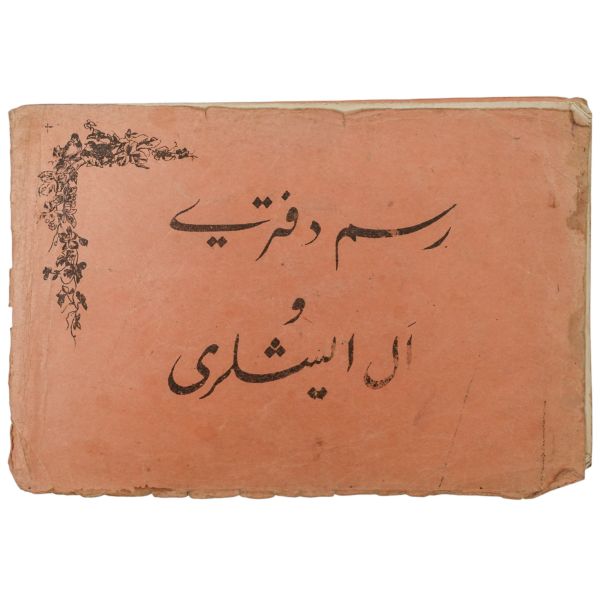 رسم دفتری
و
اَل ایشلری